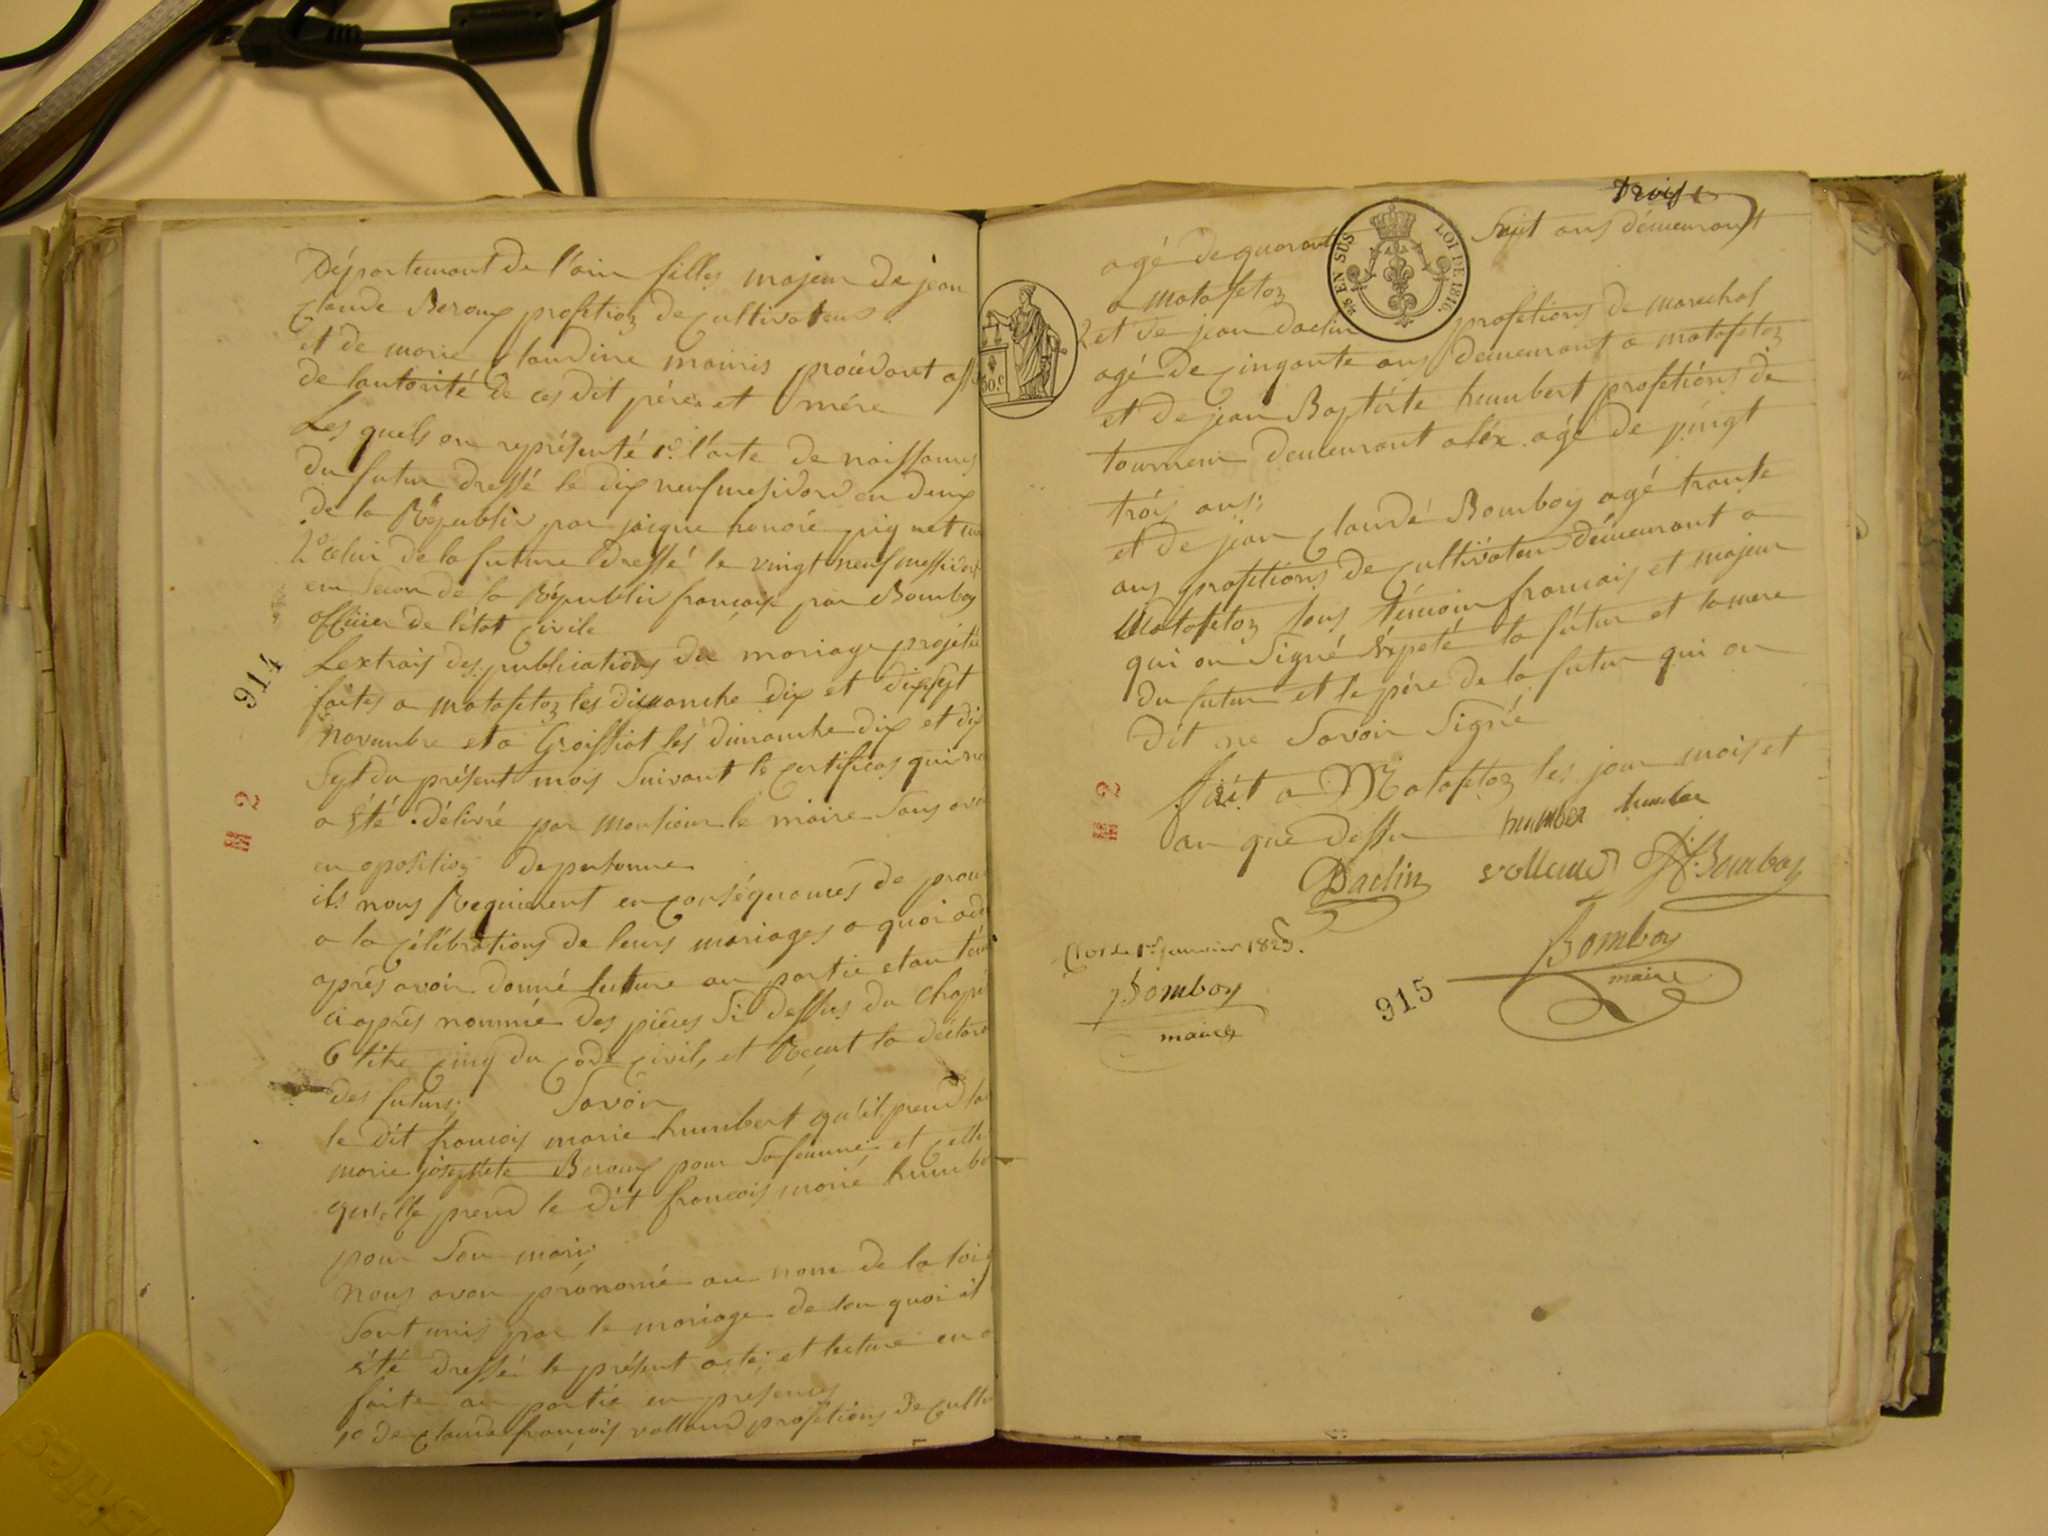 Département de l'ain filles majeur de jean
Claude Beroux profetion de cultivateur
et de marie Claudine mairis procédant
de lautorité de ces dit pére et mére
Les quels on représenté 1º l'acte de naissances
du futur dressé le dix neuf mesidord en deux
de la Républic par jacque honoré pignet
2º celui de la future dressé le vingt neuf messidor
en Secon de la Républic français par Bomboy
officier de l'état Civile
Lextrais des publications du mariage projeté
faites a matafelon les dimanche dix et dix sept
novembre et a Groissiat les dimanche dix et dix
Sept du présent mois Suivant le certificas qui n
a été délivré par monsieur le maire Sans
en oposition de personne
ils nous Requierent en conséquances de
a la célébrations de leurs mariages a quoi
aprés avoir donné lecture au partie et au
ci aprés nommé des piéces Si dessus du chapi
6 titre cinq du code civil, et Reçut la déclara
des futurs; Savoir
le dit francois marie humbert qu'il prend la
marie josephete Beroux pour Sa femme et celle
qu'elle prend le dit francois marie humbe
pour Son mari
nous avon prononcé au nom de la loi
Sont unis par le mariage de leu quoi il
été dressé le présent acte, et lecture en a
faite au partie en presences
1º de claude françois volland profetions de cultiv
914
M 2
Troisé
agé de quarante Sept ans demeurant
a matafelon
2 et de jean daclin profetions de marechal
agé de cinqante ans demeurant a matafelon
et de jean Baptiste humbert profetions de
tourneur demeurant a léx agé de vingt
trois ans;
et de jean Claudé Bomboy agé trante
ans profetions de cultivateur demeurant a
Matafelon tous témoin francais et majeur
qui on Signé éxpeté la futur et la mere
du futur et le pére de la futur qui on
dit ne Savoir Signé
fait a Matafelon les jour mois et
an que dessu humber humber
Daclin volland Bomboy
Bomboy
maire
Clos le 1er janvier 1823.
Bomboy
maire
915
M 2
¼ EN SUS LOI DE 1816.
50.c